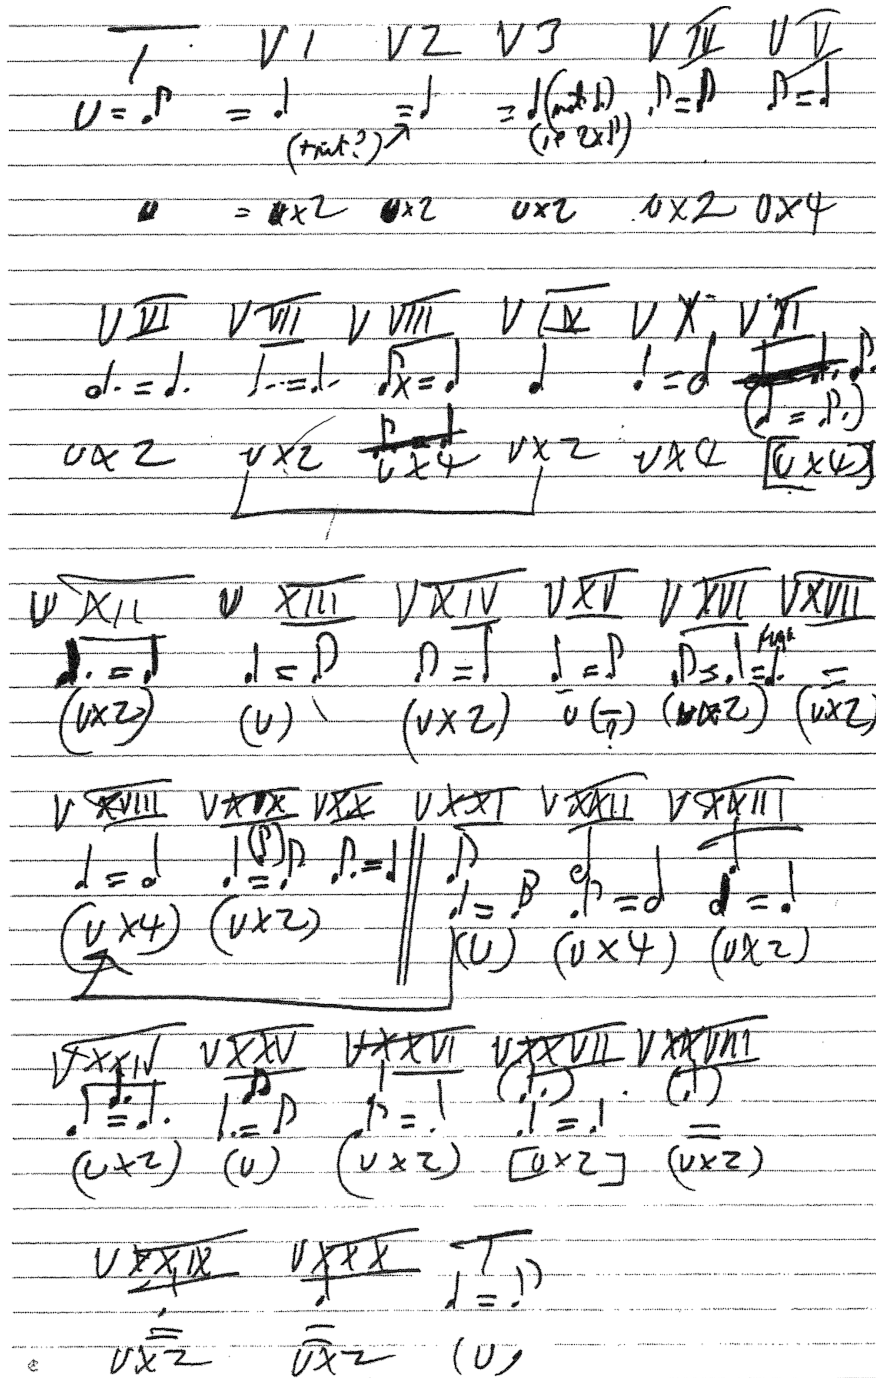 T V1 V2 V3 V IV V V
U = ♪ = ♩ = ♩ = ♩ (not ♩.) ♪ = ♪ ♪ = ♩
(trist?) (ie 2x♪)
U = U×2 U×2 U×2 U×2 U×4
V VI V VII V VIII V IX V X V XI
♩. = ♩. ♩. = ♩. = ♩ ♩ ♩ = 𝅗𝅥
(♩ = ♪.)
U×2 U×2 U×4 U×2 U×4 [(U×4)]
V XII V XIII V XIV V XV V XVI V XVII
♩. = ♩ ♩ = ♪ ♪ = ♩ ♩ = ♪ = ♩ = ♩. =
(U×2) (U) (U×2) U (U×2) (U×2)
V XVIII V XIX V XX V XXI V XXII V XXIII
♩ = 𝅗𝅥 ♩ (♪) = ♪ ♪. = ♩ ♩ = ♪ ♪ = 𝅗𝅥 𝅗𝅥 = ♩
(U×4) (U×2) (U) (U×4) (U×2)
V XXIV V XXV V XXVI V XXVII V XXVIII
♩ = ♩. ♩. = ♪ ♪ = ♩ ♩ = ♩ (♩) =
(U×2) (U) (U×2) [U×2] (U×2)
V XXIX V XXX T
= = ♩ = ♪
U×2 U×2 (U)